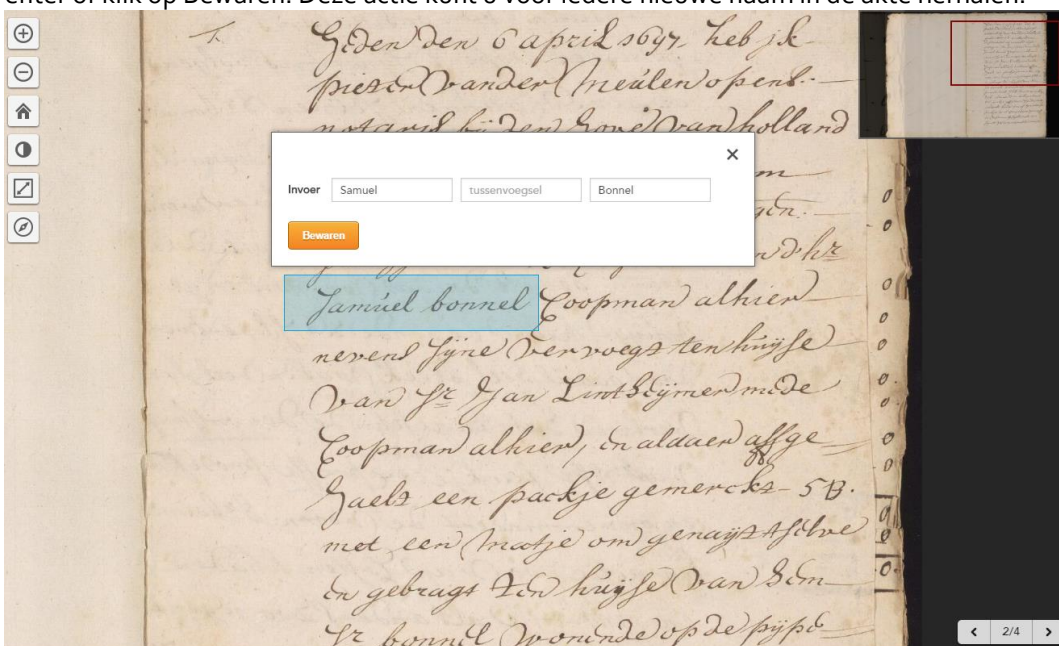 enter of klik op Bewaren. Deze actie kunt u voor iedere nieuwe naam in de akte herhalen.
1.
Heden den 6 april 1697, heb ik
pieter Vander Meulen openb.
notaris bij den hove Van holland
Invoer Samuel tussenvoegsel Bonnel
Bewaren
d'hr
Samuel bonnel Coopman alhier
nevens sijne vervoegt ten huijse
Van Sr Jan Lintheijmer mede
Coopman alhier, en aldaer affge
haelt een packje gemerckt SB.
met een matje om genaijt tselve
en gebragt ten huijse Van hem
Sr bonnel Wonende op de pijpe
2/4